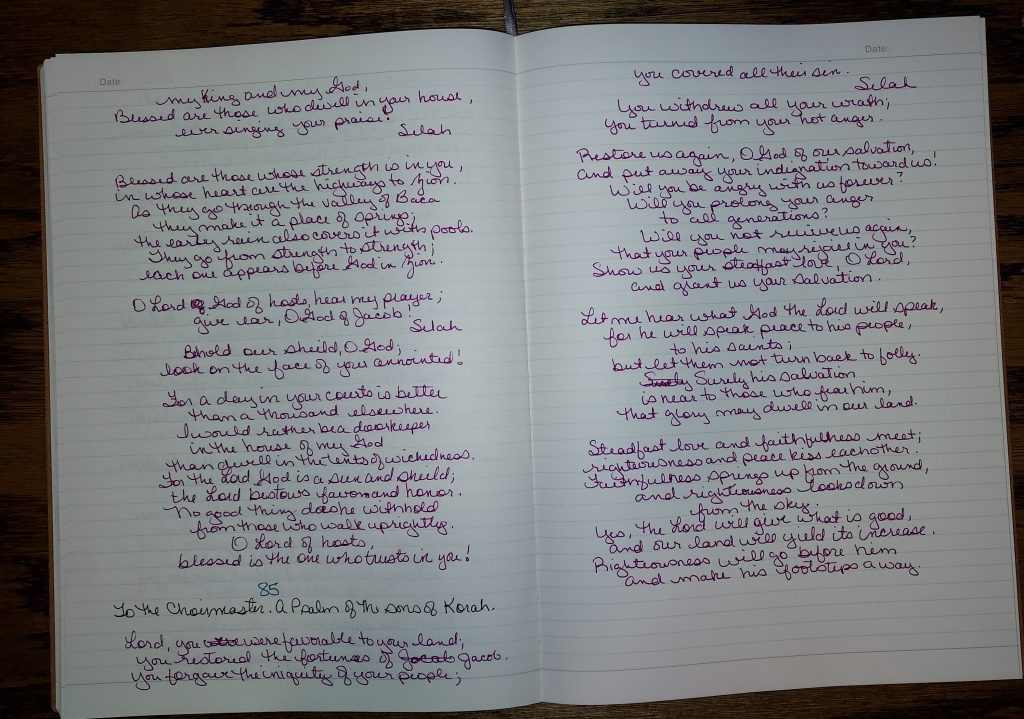 Date:
my King and my God,
Blessed are those who dwell in your house,
ever singing your praise!
Selah
Blessed are those whose strength is in you,
in whose heart are the highways to Zion.
As they go through the valley of Baca
they make it a place of springs;
the early rain also covers it with pools.
They go from strength to strength;
each one appears before God in Zion.
O Lord of God of hosts, hear my prayer;
give ear, O God of Jacob;
Selah
Behold our sheild, O God;
look on the face of your annointed!
For a day in your courts is better
than a thousand elsewhere.
I would rather be a doorkeeper
in the house of my God
than dwell in the tents of wickedness.
For the Lord God is a sun and sheild;
the Lord bestows favor and honor.
No good thing does he withhold
from those who walk uprightly.
O Lord of hosts,
blessed is the one who trusts in you!
85
To the Choirmaster. A Psalm of the sons of Korah.
Lord, you were were favorable to your land;
you restored the fortunes of Jacob Jacob.
You forgave the iniquity of your people;
Date:
you covered all their sin.
Selah
You withdrew all your wrath;
you turned from your hot anger.
Restore us again, O God of our salvation,
and put away your indignation toward us!
Will you be angry with us forever?
Will you prolong your anger
to all generations?
Will you not revive us again,
that your people may rejoice in you?
Show us your steadfast love, O Lord,
and grant us your salvation.
Let me hear what God the Lord will speak,
for he will speak peace to his people,
to his saints;
but let them not turn back to folly.
Surely Surely his salvation
is near to those who fear him,
that glory may dwell in our land.
Steadfast love and faithfulness meet;
righteousness and peace kiss eachother.
Faithfulness springs up from the ground,
and righteousness looks down
from the sky.
Yes, the Lord will give what is good,
and our land will yield its increase.
Righteousness will go before him
and make his footsteps a way.